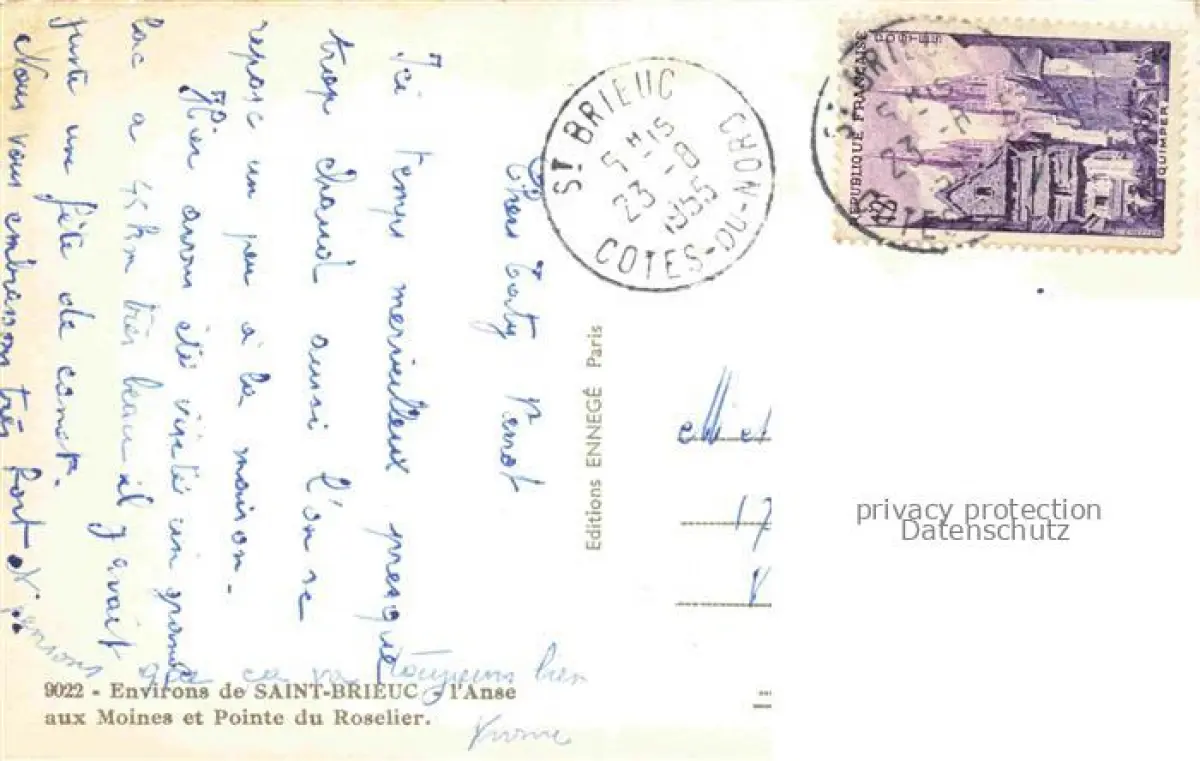 Chers
Ici temps merveilleux presque
trop chaud aussi l'on se
repose un peu à la maison.
Hier avons été visité un grand
lac a 45 km très beau il y avait
juste un fête de canot.
Nous vous embrassons très fort
pensons que ca va toujours bien
Yvonne
ST BRIEUC
5H15
23-8
1955
COTES-DU-NORD
REPUBLIQUE FRANÇAISE
POSTES
QUIMPER
ST BRIEUC
23
COTES
Editions ENNEGÉ Paris
M et
17
privacy protection
Datenschutz
9022 - Environs de SAINT-BRIEUC - l'Anse
aux Moines et Pointe du Roselier.